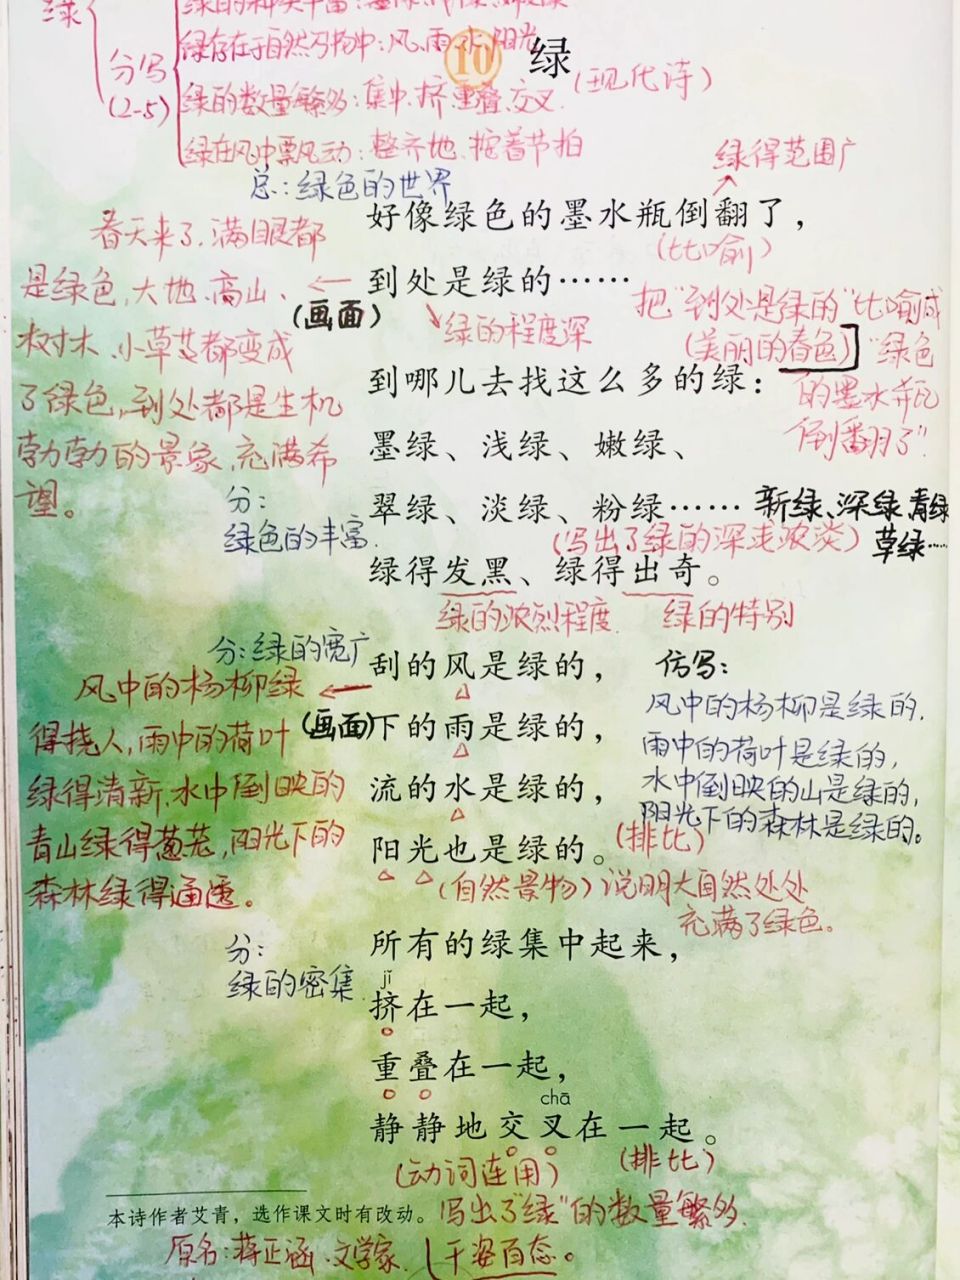 绿
绿的种类丰富:墨绿、浅绿、嫩绿
分写
(2-5)
绿存在于自然万物中:风、雨、水、阳光
10 绿
(现代诗)
绿的数量繁多:集中、挤、重叠、交叉.
绿在风中飘动:整齐地、按着节拍
绿得范围广
总:绿色的世界
好像绿色的墨水瓶倒翻了,
(比喻)
到处是绿的……
春天来了,满眼都
是绿色,大地、高山、
树木、小草等都变成
了绿色,到处都是生机
勃勃的景象,充满希
望。
(画面)
绿的程度深
把“到处是绿的”比喻成
(美丽的春色)
“绿色
的墨水瓶
倒翻了”
到哪儿去找这么多的绿:
墨绿、浅绿、嫩绿、
分:
绿色的丰富.
翠绿、淡绿、粉绿……
新绿、深绿、青绿
草绿……
(写出了绿的深浅浓淡)
绿得发黑、绿得出奇。
绿的浓烈程度
绿的特别
分:绿的宽广
刮的风是绿的,
下的雨是绿的,
流的水是绿的,
阳光也是绿的。
(排比)
风中的杨柳绿
得挠人,雨中的荷叶
绿得清新,水中倒映的
青山绿得葱茏,阳光下的
森林绿得通透。
(画面)
仿写:
风中的杨柳是绿的,
雨中的荷叶是绿的,
水中倒映的山是绿的,
阳光下的森林是绿的。
(自然景物)说明大自然处处
充满了绿色。
分:
绿的密集
所有的绿集中起来,
jǐ
挤在一起,
重叠在一起,
chā
静静地交叉在一起。
(动词连用)
(排比)
写出了“绿”的数量繁多,
千姿百态。
本诗作者艾青,选作课文时有改动。
原名:蒋正涵、文学家